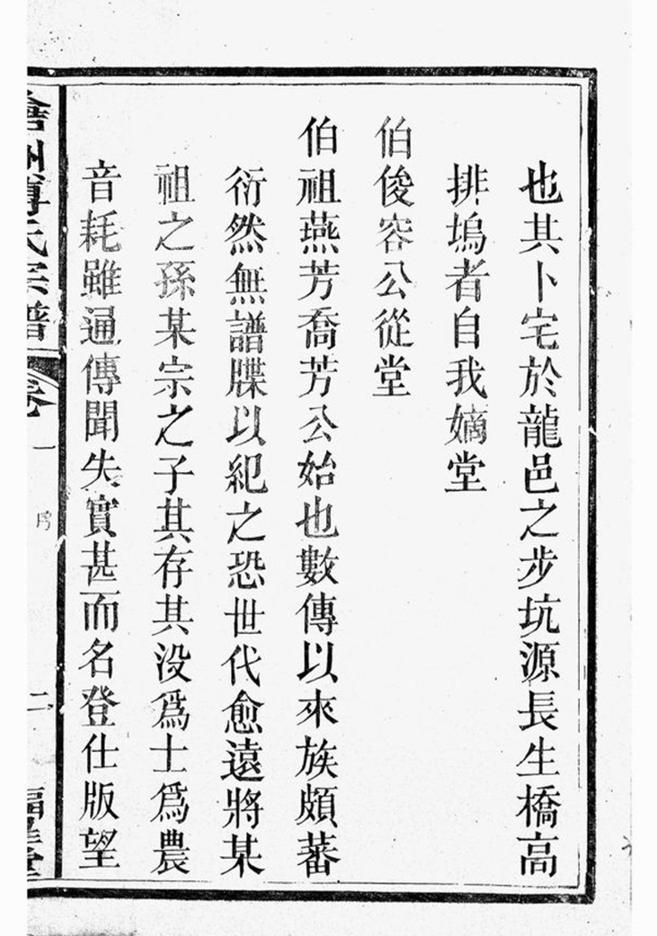 也其卜宅於龍邑之步坑源長生橋高
排塢者自我嫡堂
伯俊容公從堂
伯祖燕芳喬芳公始也數傳以來族頗蕃
衍然無譜牒以紀之恐世代愈遠將某
祖之孫某宗之子其存其没爲士爲農
音耗雖通傳聞失實甚而名登仕版望
傅氏宗譜
卷一
序
二
堂